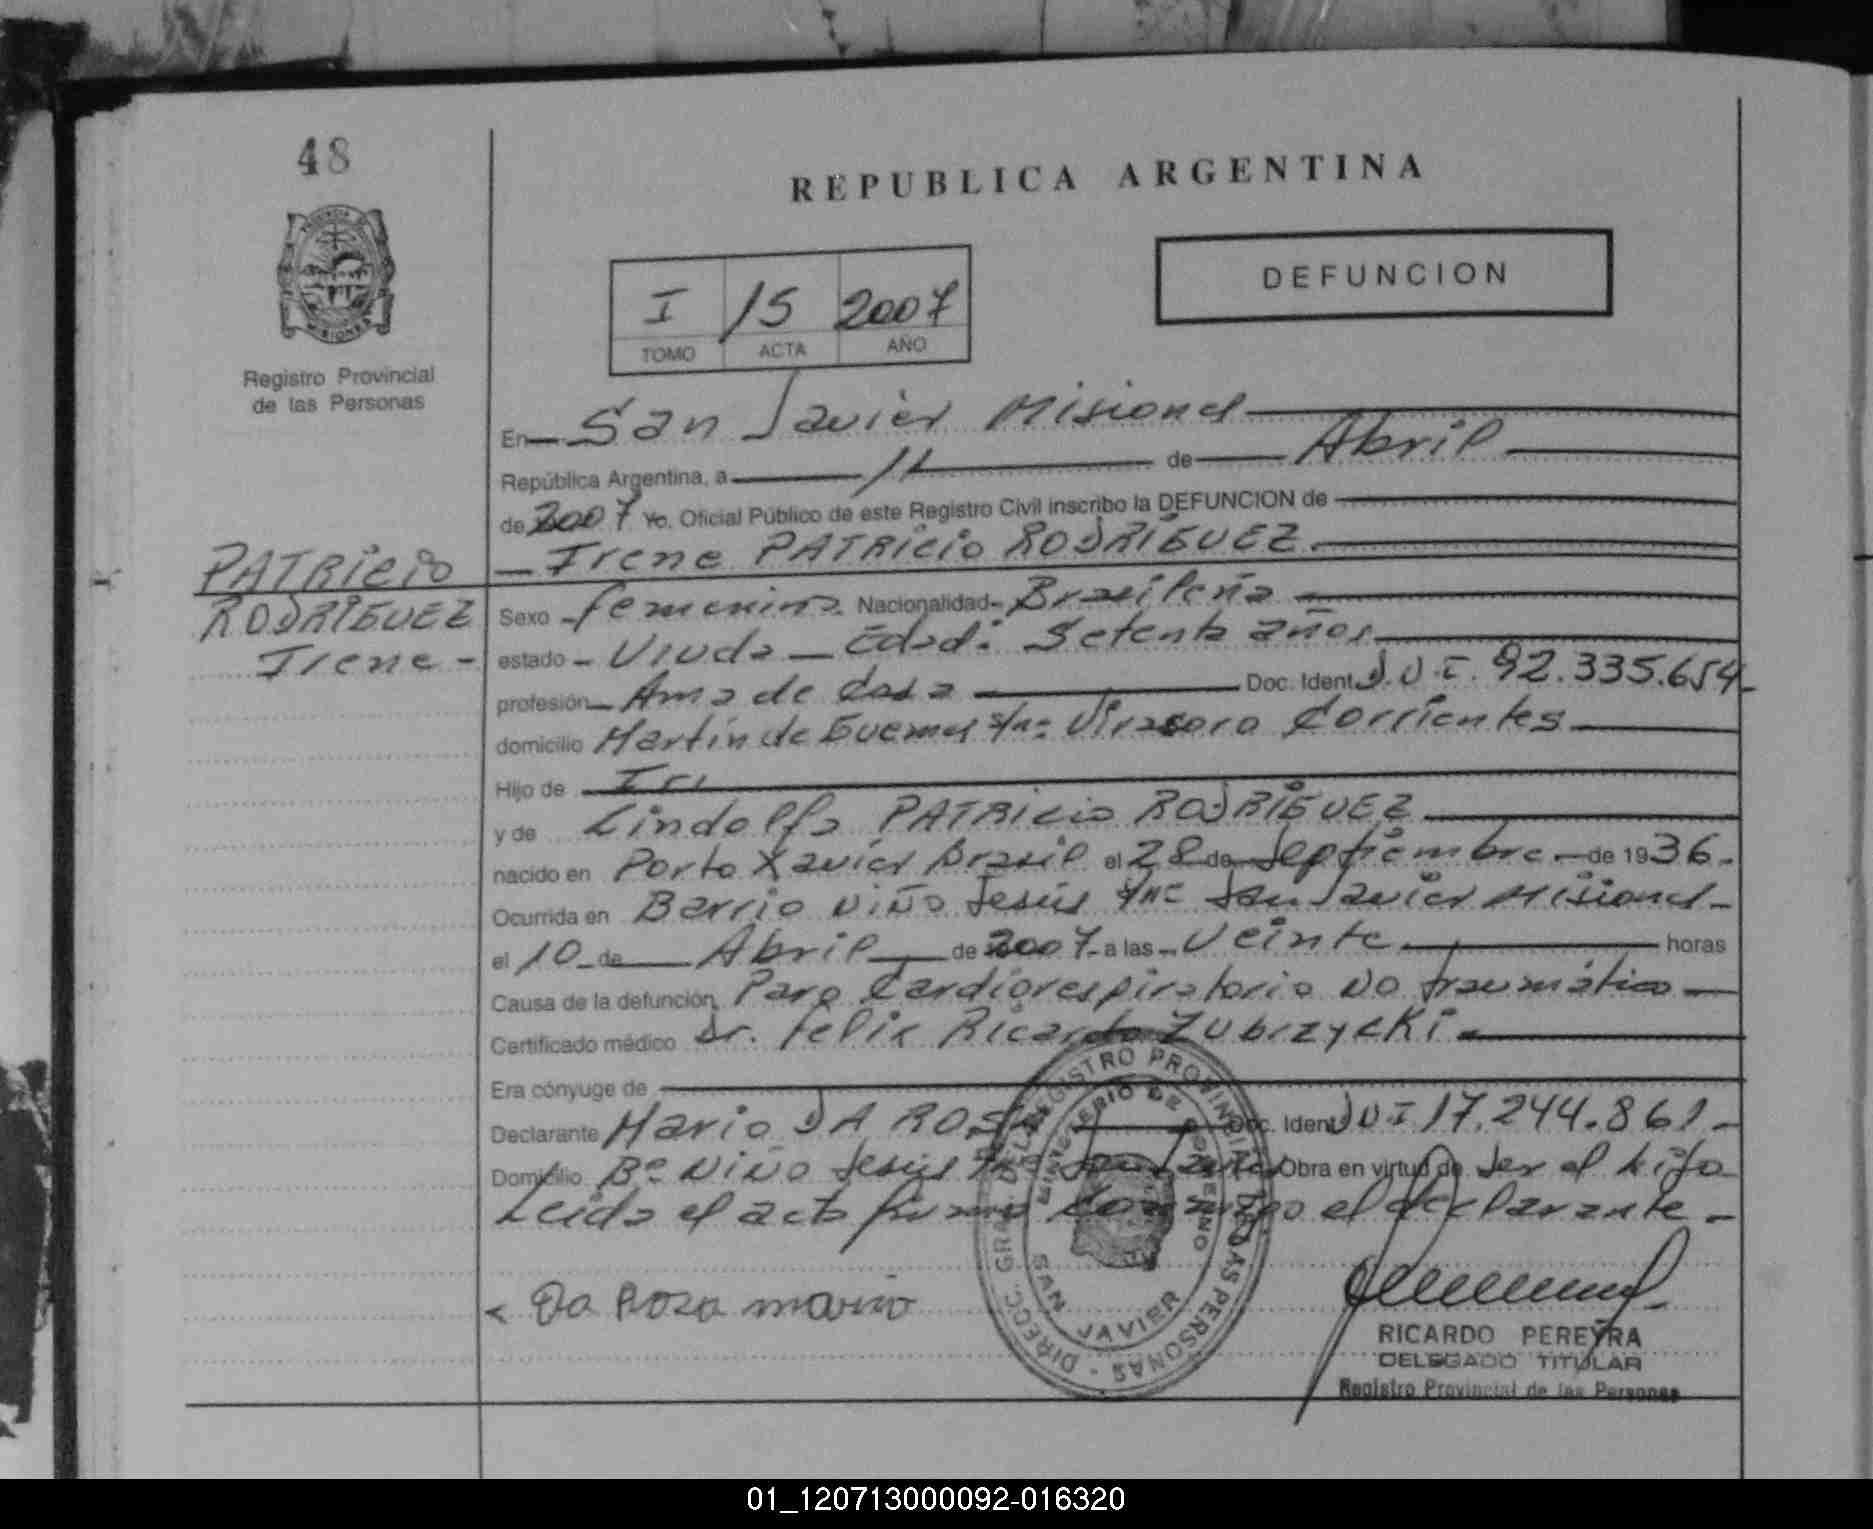 48
REPUBLICA ARGENTINA
DEFUNCION
I 15 2007
TOMO ACTA AÑO
PROVINCIA DE
MISIONES
Registro Provincial
de las Personas
En San Javier Misiones
República Argentina, a 11 de Abril
de 2007 Yo, Oficial Público de este Registro Civil inscribo la DEFUNCION de
Irene PATRICIO RODRÍGUEZ.
PATRICIO
RODRÍGUEZ
Irene -
Sexo femenino. Nacionalidad Brasileña
estado - Viuda - Edad: Setenta años.
profesión Ama de Casa Doc. Ident. D.N.I. 92.335.654-
domicilio Martín de Guemes s/nº Virasoro Corrientes
Hijo de
y de Lindolfo PATRICIO RODRÍGUEZ
nacido en Porto Xavier Brasil el 28 de Septiembre de 1936.
Ocurrida en Barrio Niño Jesús s/nº San Javier Misiones-
el 10 de Abril de 2007 a las Veinte horas
Causa de la defunción Paro Cardiorespiratorio no traumático
Certificado médico Dr. Felix Ricardo Zubrzycki.
Era cónyuge de
Declarante Mario DA ROSA Doc. Ident. DNI 17.244.861-
Domicilio Bº Niño Jesús s/nº San Javier Obra en virtud de Ser el hijo
Leida el acta firma conmigo el declarante -
Da Rosa mario
DIRECC. GRAL. DEL REGISTRO PROVINCIAL DE LAS PERSONAS -
MINISTERIO DE GOBIERNO
SAN JAVIER
RICARDO PEREYRA
DELEGADO TITULAR
Registro Provincial de las Personas
01_120713000092-016320